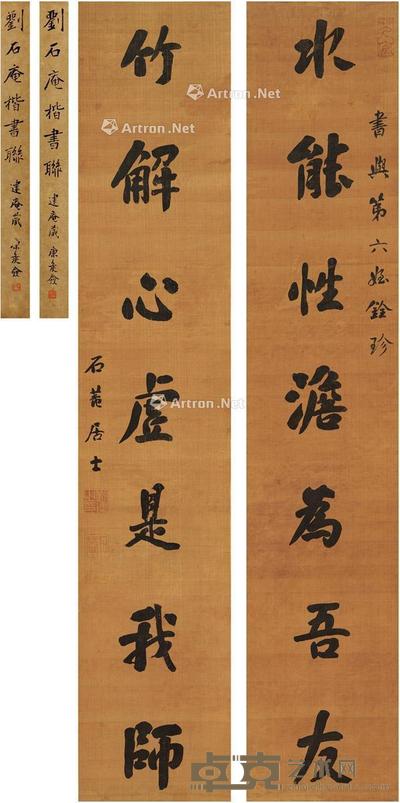 書與第六姪銓珍
水能性澹為吾友
竹解心虛是我師
石菴居士
劉石庵楷書聯 建庵藏 康矦僉
劉石庵楷書聯 建庵藏 康矦僉
Artron.Net
Artron.Net
Artron.Net
Artron.Net
卓克艺术网